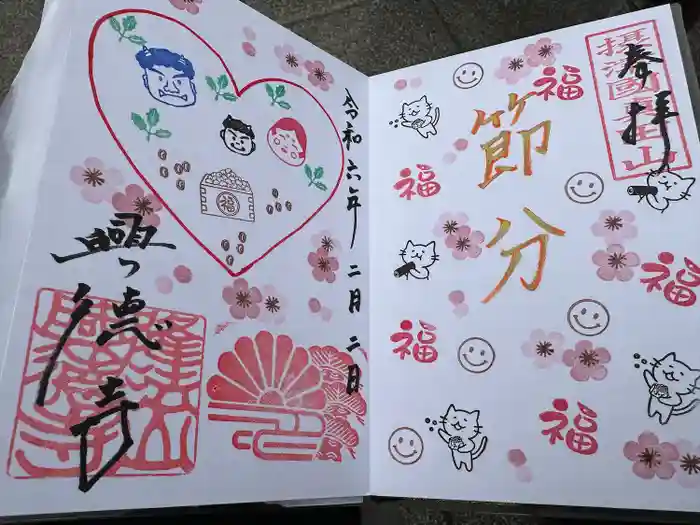 奉拝
摂津國真田山
節分
福
福
福
福
福
令和六年二月二日
福
興徳寺